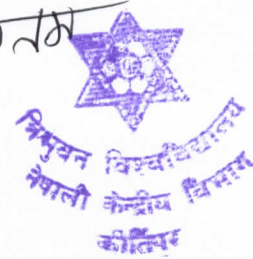 त्रिभुवन विश्वविद्यालय
नेपाली केन्द्रीय विभाग
कीर्तिपुर